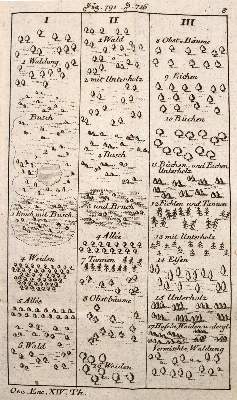 Fig. 791. S. 716
8
I
1 Waldung
Busch
Bruch mit Busch
4 Weiden
5 Allée
5. Wald
II
1 Wald
2 mit Unterholz
Busch
und Bruch
4 Allée
7 Tannen
8 Obstbäume
Weiden
III
8 Obst-Bäume
9 Eichen
10 Büchen
11 Büchen und Eichen
Unterholtz
12 Fichten und Tannen
13 mit Unterholz
14 Elsen
15 Unterholtz
17 Hasseln Weiden u. dergl.
Vermischte Waldung
Oec. Enc. XIV. Th.